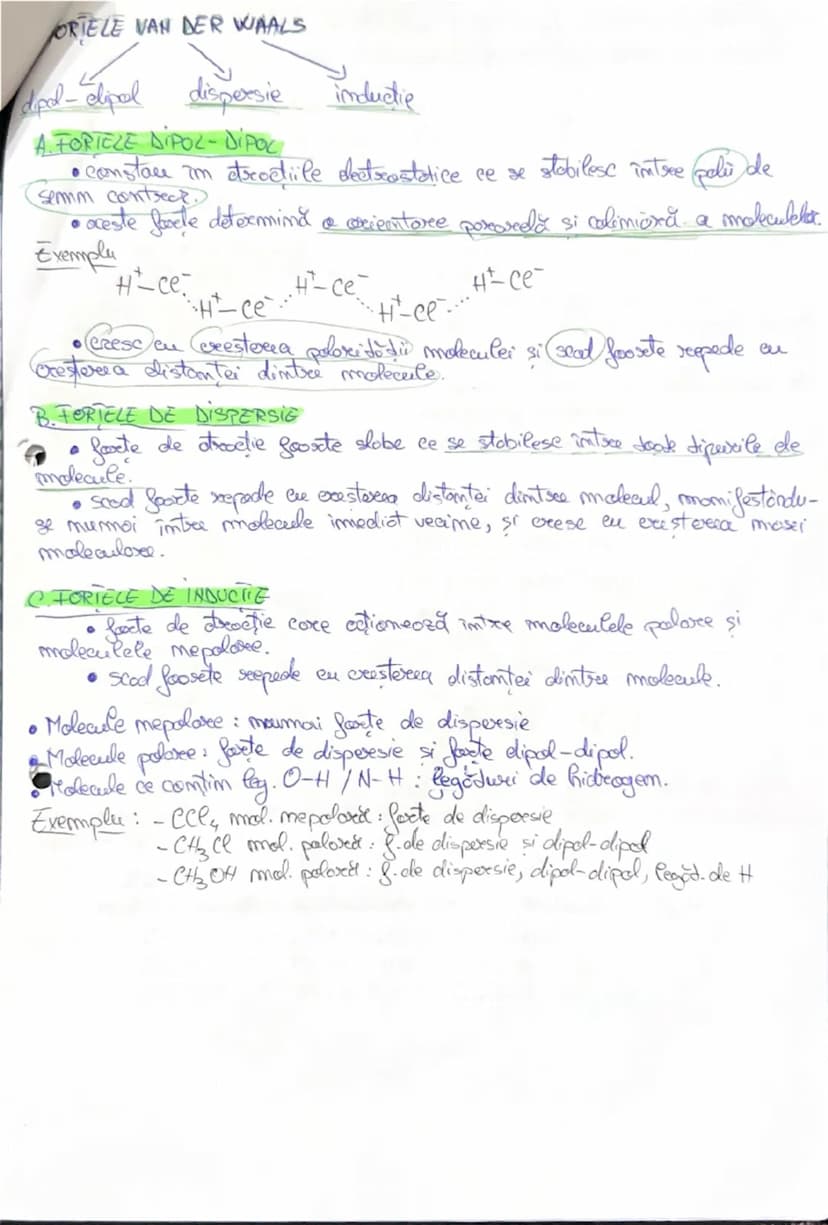 ORȚELE VAN DER WAALS
dipol-dipol dispersie inducție
A. FORȚELE DIPOL-DIPOL
• constau în atracțiile electrostatice ce se stabilesc între polii de
semn contrar.
• aceste forțe determină o orientare paralelă și coliniară a moleculelor.
Exemplu
H⁺-Cl⁻ H⁺-Cl⁻ H⁺-Cl⁻
H⁺-Cl⁻ H⁺-Cl⁻
• cresc cu creșterea polarității moleculei și scad foarte repede cu
creșterea distanței dintre molecule.
B. FORȚELE DE DISPERSIE
• forțe de atracție foarte slabe ce se stabilesc între toate tipurile de
molecule.
• scad foarte repede cu creșterea distanței dintre molecul, manifestându-
se numai între molecule imediat vecine, și cresc cu creșterea masei
moleculare.
C. FORȚELE DE INDUCȚIE
• forțe de atracție care acționează între moleculele polare și
moleculele nepolare.
• scad foarte repede cu creșterea distanței dintre molecule.
• Molecule nepolare: numai forțe de dispersie
• Molecule polare: forțe de dispersie și forțe dipol-dipol.
• Molecule ce conțin leg. O-H / N-H: legături de hidrogen.
Exemplu: - CCl₄ mol. nepolară: forțe de dispersie
- CH₃Cl mol. polară: f. de dispersie și dipol-dipol
- CH₃OH mol. polară: f. de dispersie, dipol-dipol, legăt. de H